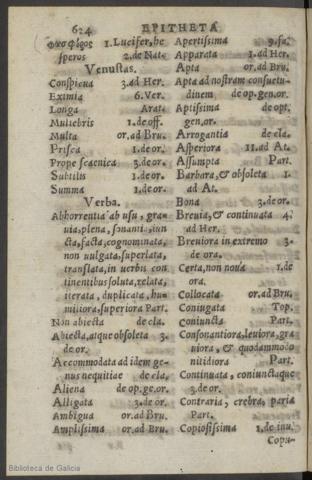 624 EPITHETA
φωσφόρος 1. Lucifer, he
speros 2. de Nat.
Venustas.
Conspicua 3. ad Her.
Eximia 6. Ver.
Longa Arat.
Muliebris 1. de off.
Multa or. ad Bru.
Prisca 1. de or.
Prope scaenica 3. de or.
Subtilis 1. de or.
Summa 1. de or.
Verba.
Abhorrentia ab usu, gra-
uia, plena, sonanti, iun
cta, facta, cognominata,
non uulgata, superlata,
translata, in uerbis con
tinentibus soluta, relata,
iterata, duplicata, hu-
miliora, superiora Part.
Non abiecta de cla.
Abiecta, atque obsoleta 3.
de or.
Accommodata ad idem ge-
nus nequitiae de cla.
Aliena de op. ge. or.
Alligata 3. de or.
Ambigua or. ad Bru.
Amplissima or. ad Bru.
Apertissima 9. fa.
Apparata 1. ad Her.
Apta or. ad Bru.
Apta ad nostram consuetu-
dinem de op. gen. or.
Aptissima de opt.
gen. or.
Arrogantia de cla.
Asperiora 11. ad At.
Assumpta Part.
Barbara, & obsoleta 1.
ad At.
Bona 3. de or.
Breuia, & continuata 4.
ad Her.
Breuiora in extremo 3.
de ora.
Certa, non noua 1. de
ora.
Collocata or. ad Bru.
Coniugata Top.
Coniuncta Part.
Consonantiora, leuiora, gra
uiora, & quodammodo
nitidiora Part.
Continuata, coniunctaque
3. de or.
Contraria, crebra, paria
Part.
Copiosissima 1. de inu.
Copu-
Biblioteca de Galicia